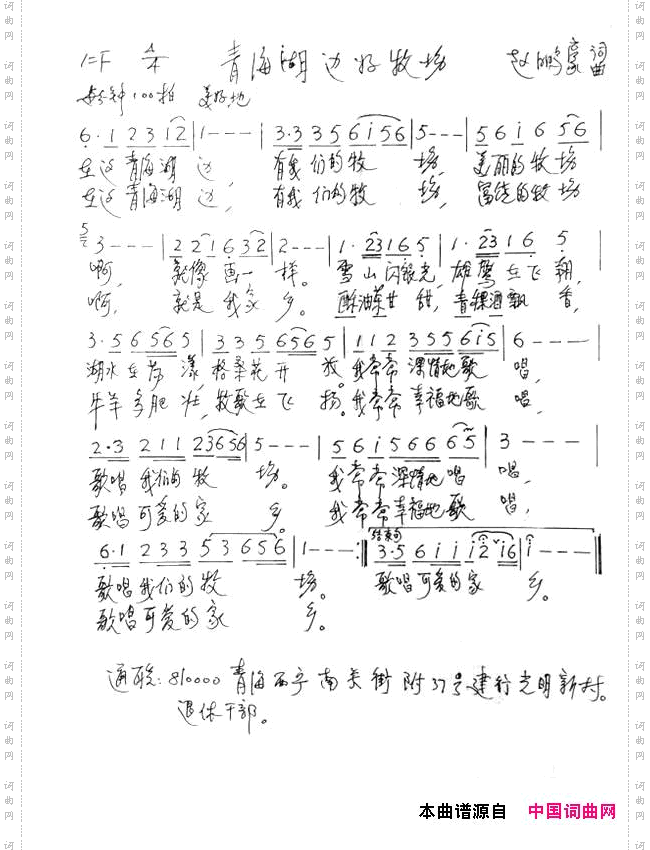 1=F 4/4 青海湖边好牧场 赵鹏豪 词曲
每分钟100拍 美好地
6·1 2 3 1 2 | 1 - - - | 3·3 3 5 6 i 5 6 | 5 - - - | 5 6 i 6 5 6 |
在这青海湖边, 有我们的牧场, 美丽的牧场
在这青海湖边, 有我们的牧场, 富饶的牧场
3 - - - | 2 2 1 6 3 2 | 2 - - - | 1· 2 3 1 6 5 | 1· 2 3 1 6 5 |
啊, 就像画一样。 雪山闪银光, 雄鹰在飞翔,
啊, 就是我家乡。 酥油茶甘甜, 青稞酒飘香,
3·5 6 5 6 5 | 3 3 5 6 5 6 5 | 1 1 2 3 5 5 6 i 5 | 6 - - - |
湖水在荡漾, 格桑花开放。 我常常深情地歌唱,
牛羊多肥壮, 牧歌在飞扬。 我常常幸福地歌唱,
2·3 2 1 1 2 3 6 5 6 | 5 - - - | 5 6 i 5 6 6 6 5 | 3 - - - |
歌唱我们的牧场。 我常常深情地唱唱,
歌唱可爱的家乡。 我常常幸福地歌唱,
6·1 2 3 3 5 3 6 5 6 | 1 - - - :‖ 结束句 3·5 6 i i i 2 i 6 | i - - - ‖
歌唱我们的牧场。 歌唱可爱的家乡。
歌唱可爱的家乡。
通联:810000 青海西宁南关街附37号建行光明新村。
退休干部。
本曲谱源自 中国词曲网
词曲网